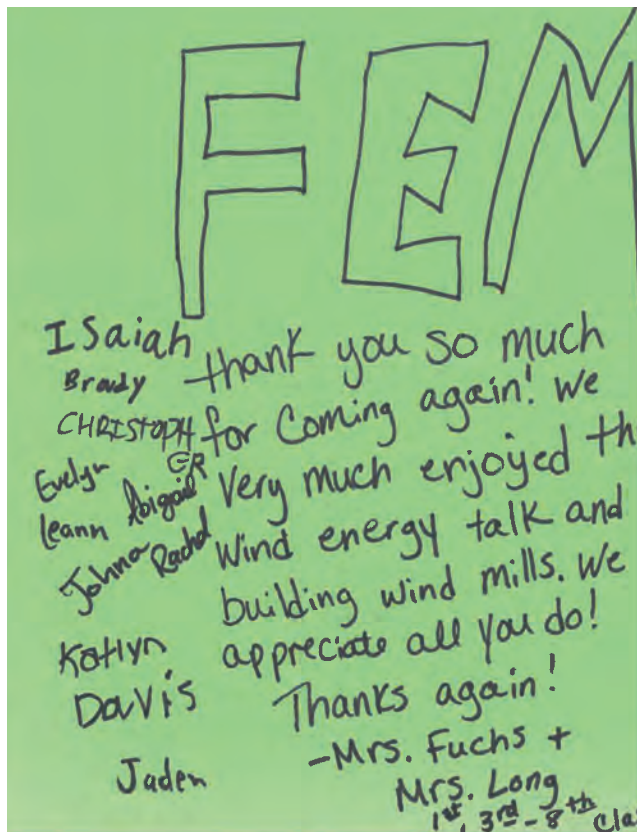 FEM
ISaiah
Brady
CHRISTOPHER
Evelyn
Abigail
Leann
Rachel
Johna
Katlyn
Davis
Jaden
thank you so much
for Coming again! We
very much enjoyed th
wind energy talk and
building wind mills. We
appreciate all you do!
Thanks again!
-Mrs. Fuchs +
Mrs. Long
1st, 3rd - 8th Cla